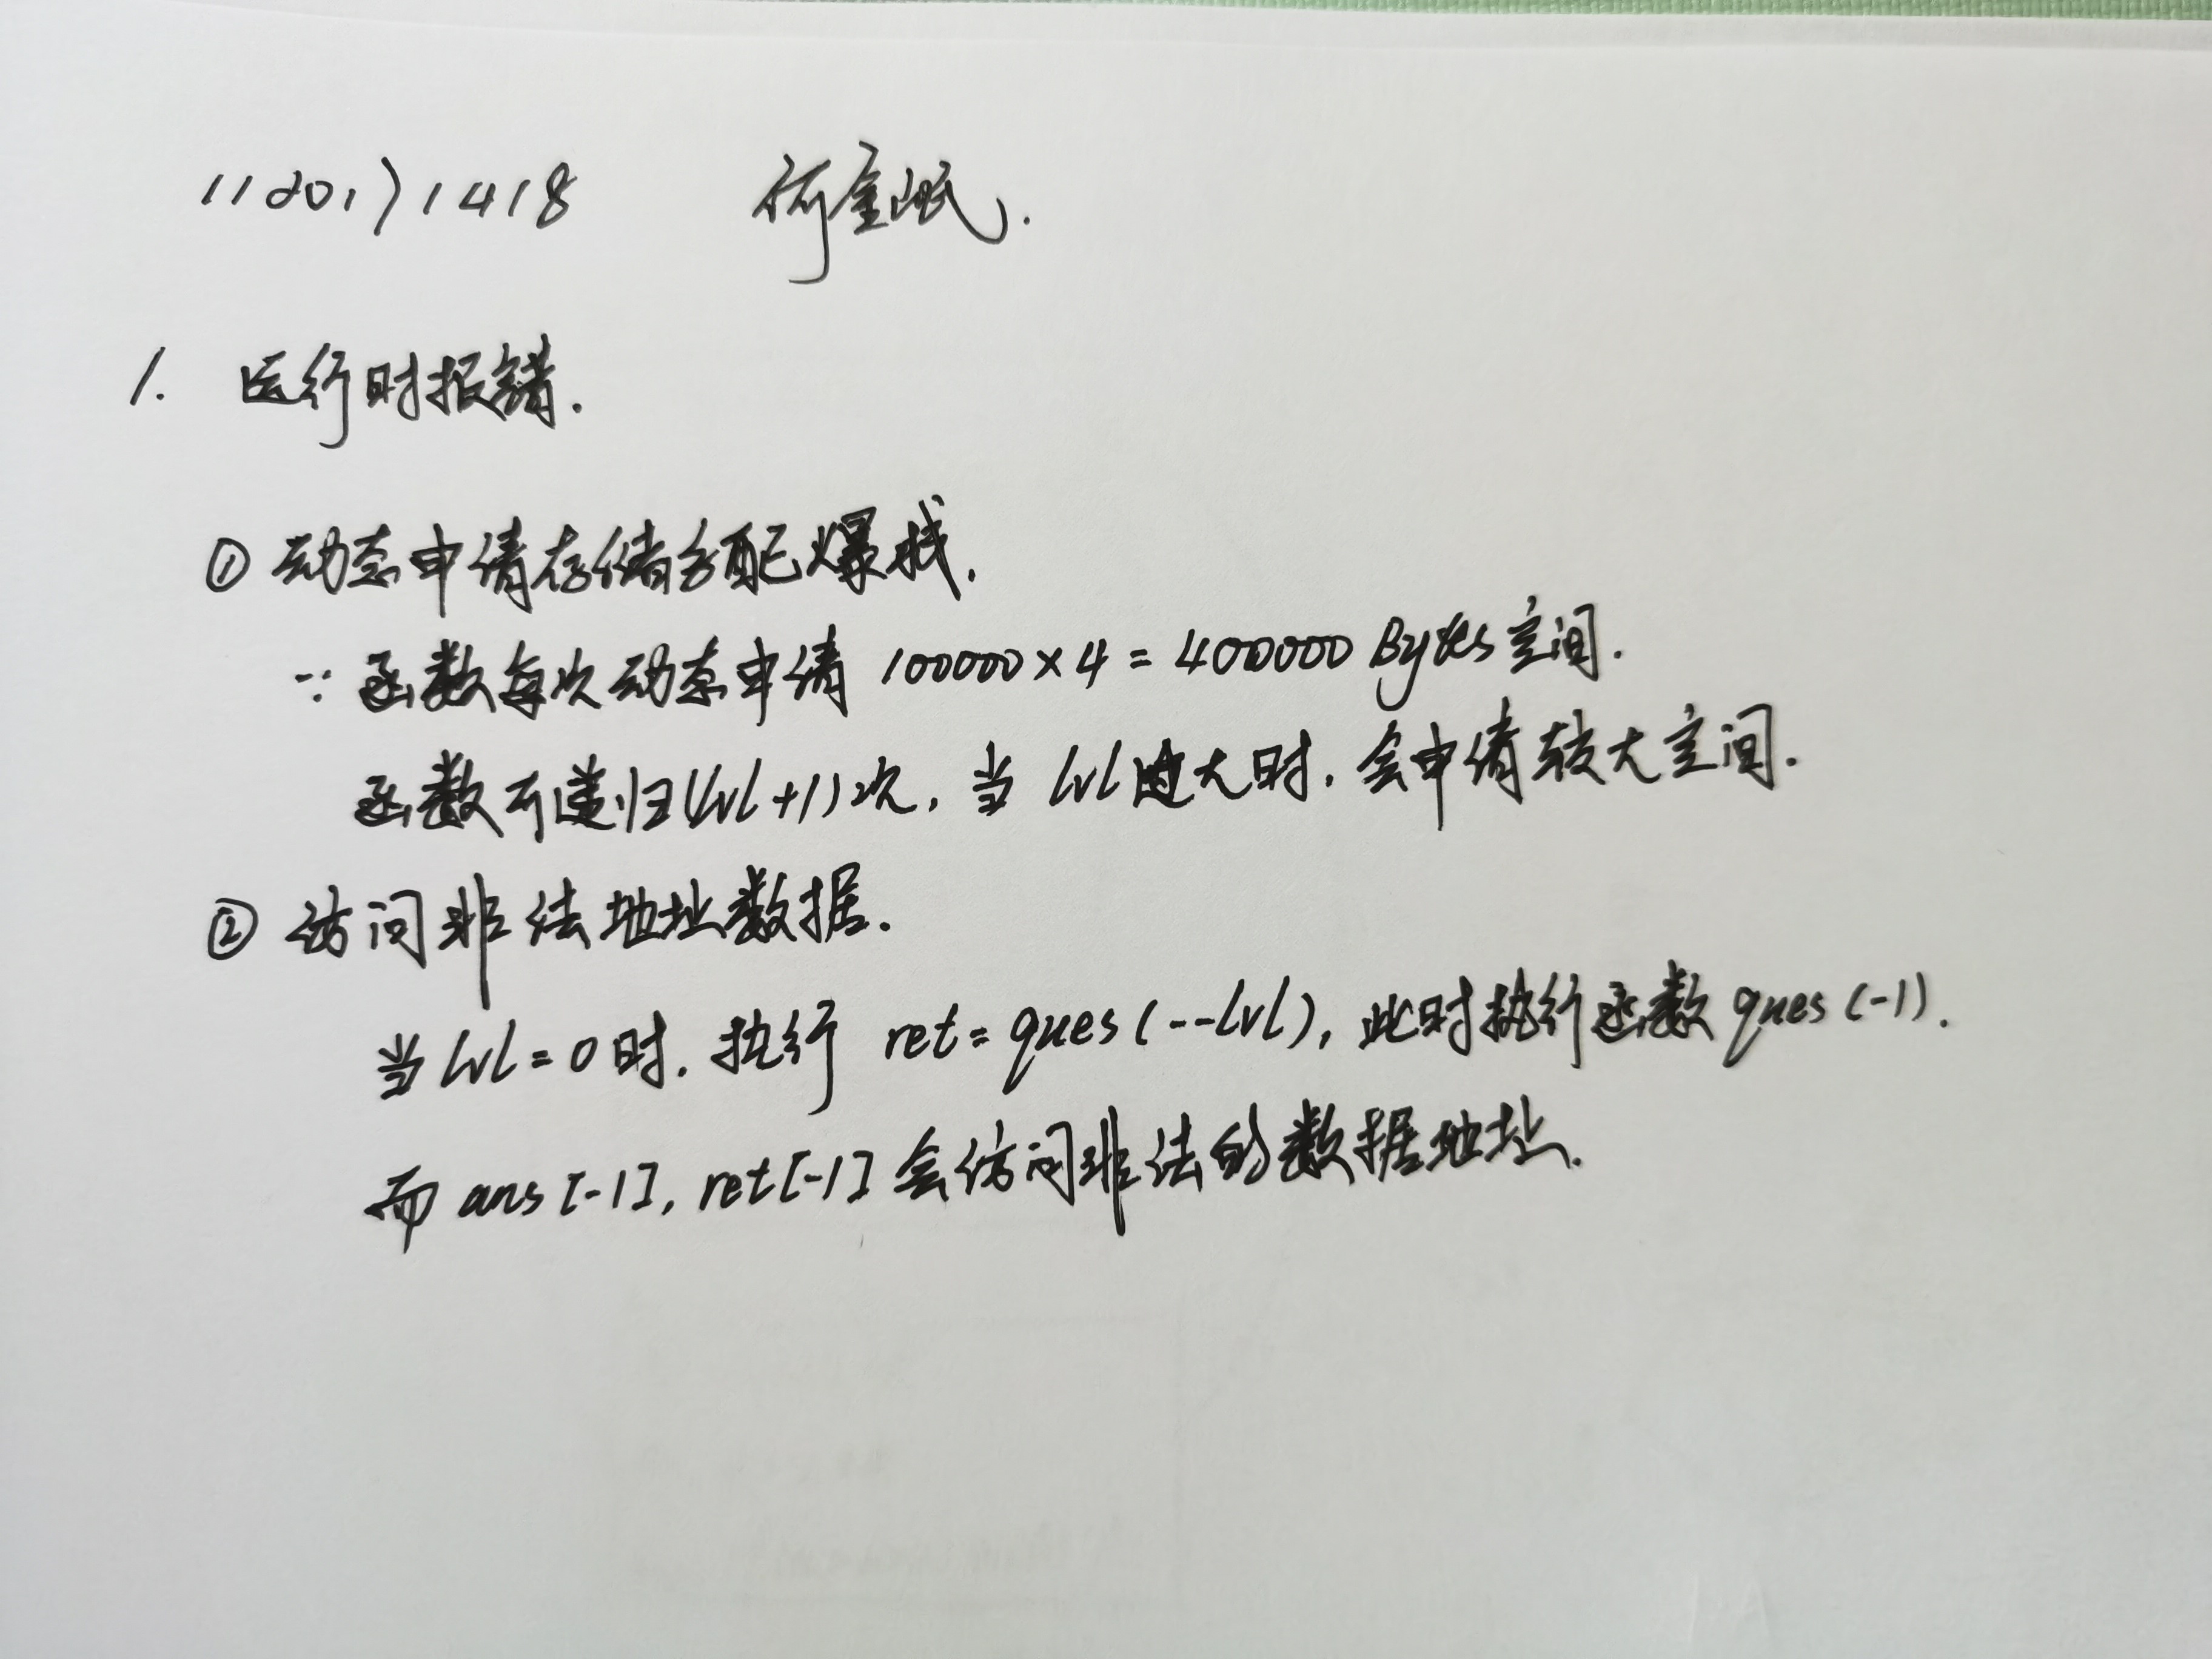 1120171418 何金岷.
1. 运行时报错.
① 动态申请存储分配爆栈.
∵ 函数每次动态申请 100000×4=400000 Bytes空间.
函数可递归(lvl+1)次, 当 lvl过大时, 会申请较大空间.
② 访问非法地址数据.
当lvl=0时, 执行 ret=ques(--lvl), 此时执行函数 ques(-1).
而 ans[-1], ret[-1] 会访问非法的数据地址.